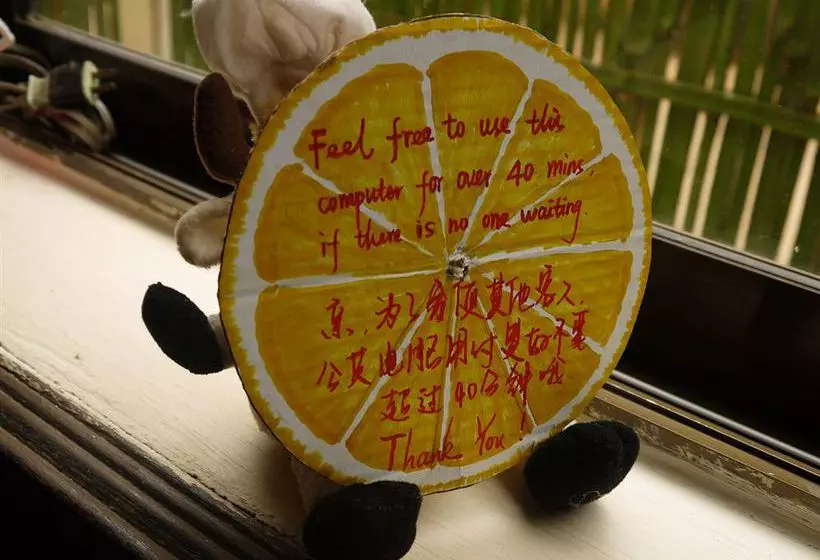 Feel free to use this
computer for over 40 mins,
if there is no one waiting.
亲,为了方便其他客人,
公共电脑用时最好不要
超过40分钟哦
Thank You!